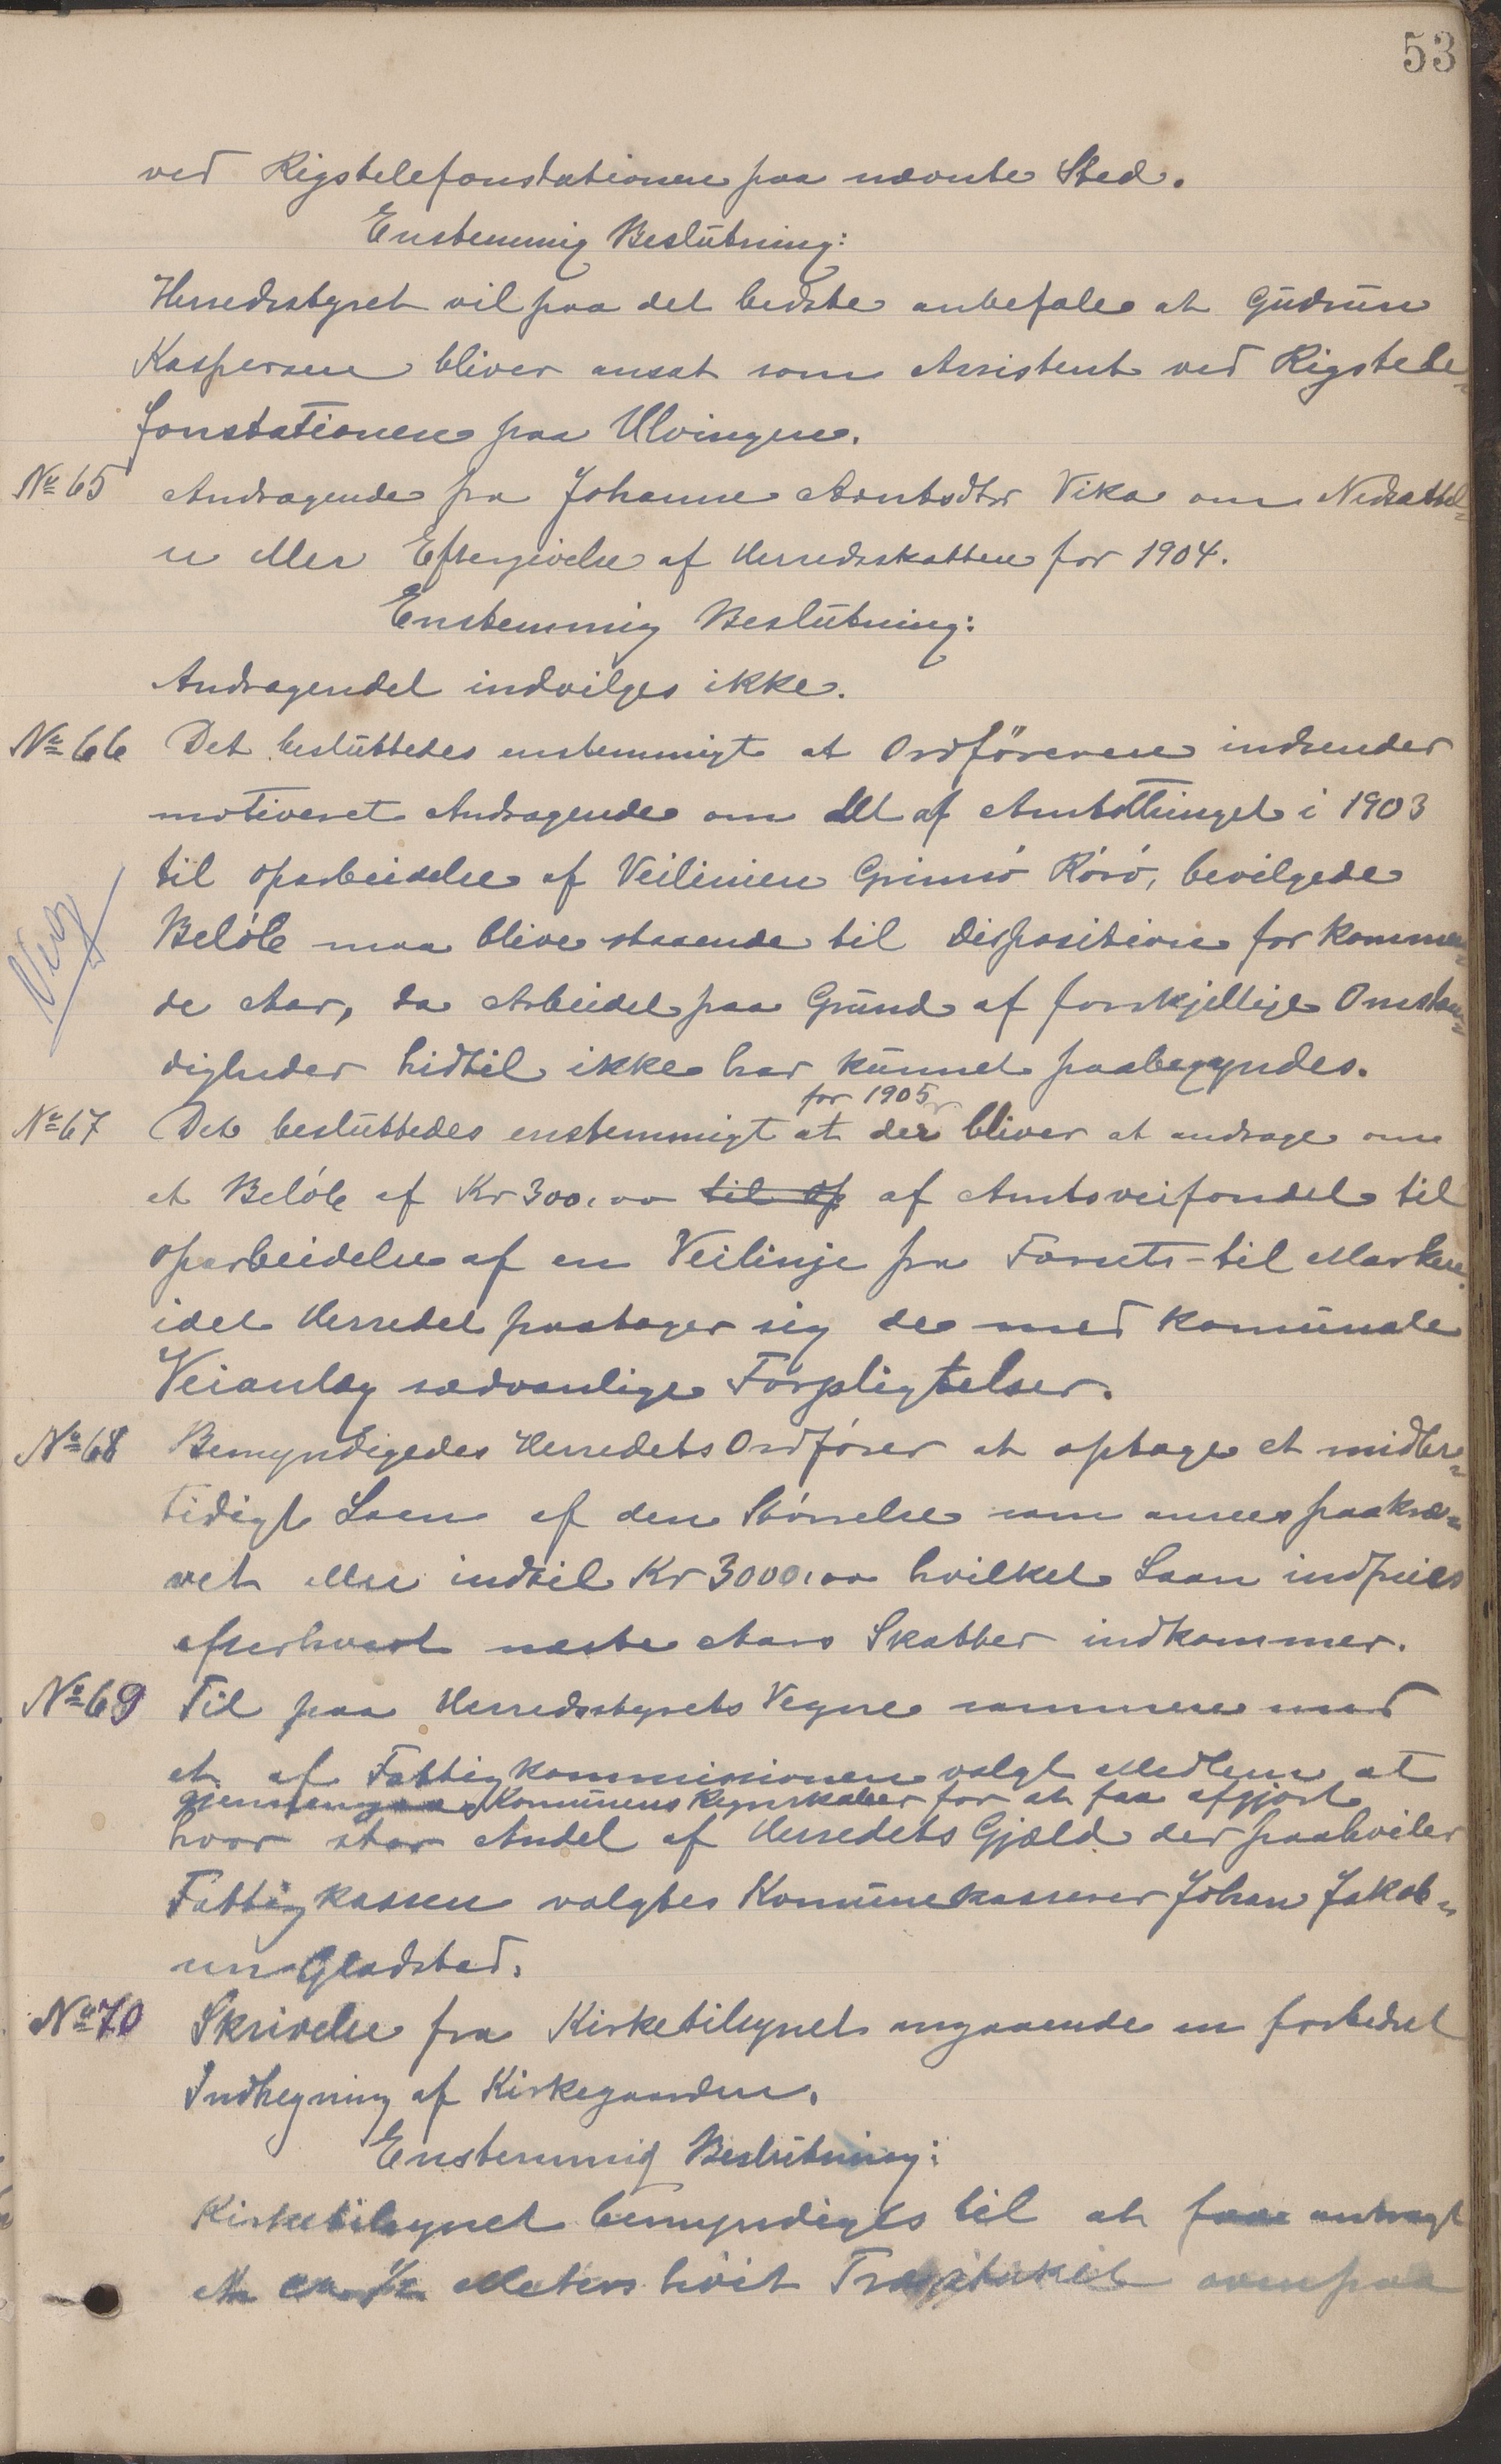 53
ved Rigstelefonstationen paa nævnte Sted.
Enstemmig Beslutning:
Herredsstyret vil paa det bedste anbefale at Gudrun
Kaspersen bliver ansat som Assistent ved Rigstele-
fonstationen paa Ulvingen.
No 65 Andragende fra Johanne Arntsdtr Vika om Nedsættel-
se eller Eftergivelse af Herredsskatten for 1904.
Enstemmig Beslutning:
Andragendet indvilges ikke.
No 66 Det besluttedes enstemmigt at Ordföreren indsender
motiveret Andragende om at det af Amtsthinget i 1903
til oparbeidelse af Veilinien Grimsó Róró, bevilgede
Belób maa blive staaende til Disposition for kommen-
Vej
de Aar, da Arbeidet paa Grund af forskjellige Omstæn-
digheder hidtil ikke har kunnet paabegyndes.
for 1905
No 67 Det besluttedes enstemmigt at der bliver at andrage om
et Belób af Kr 300,00 til op af Amtsveifondet til
oparbeidelse af en Veilinje fra Forsets-til Marken
idet Herredet paatager sig de med komunale
Veianlæg sædvanlige Forpligtelser.
No 68 Bemyndigedes Herredets Ordfórer at optage et midler-
tidigt Laan af den Stórrelse som ansees paakræ-
vet eller indtil Kr 3000,00 hvilket Laan indfries
efterhvert næste Aars Skatter indkommer.
No 69 Til paa Herredsstyrets Vegne sammen med
et af Fattigkommissionen valgt Medlem at
gjennemgaa Komunens Regnskaber for at faa afgjort
hvor stor Andel af Herredets Gjæld der paahviler
Fattigkassen valgtes Komunekasserer Johan Jakob-
sen Gladstad.
No 70 Skrivelse fra Kirketilsynet angaaende en forbedret
Indhegning af Kirkegaarden.
Enstemmig Beslutning:
Kirketilsynet bemyndiges til at faa anbragt
et ca 1/2 Meters hóit Træstakit ovenpaa